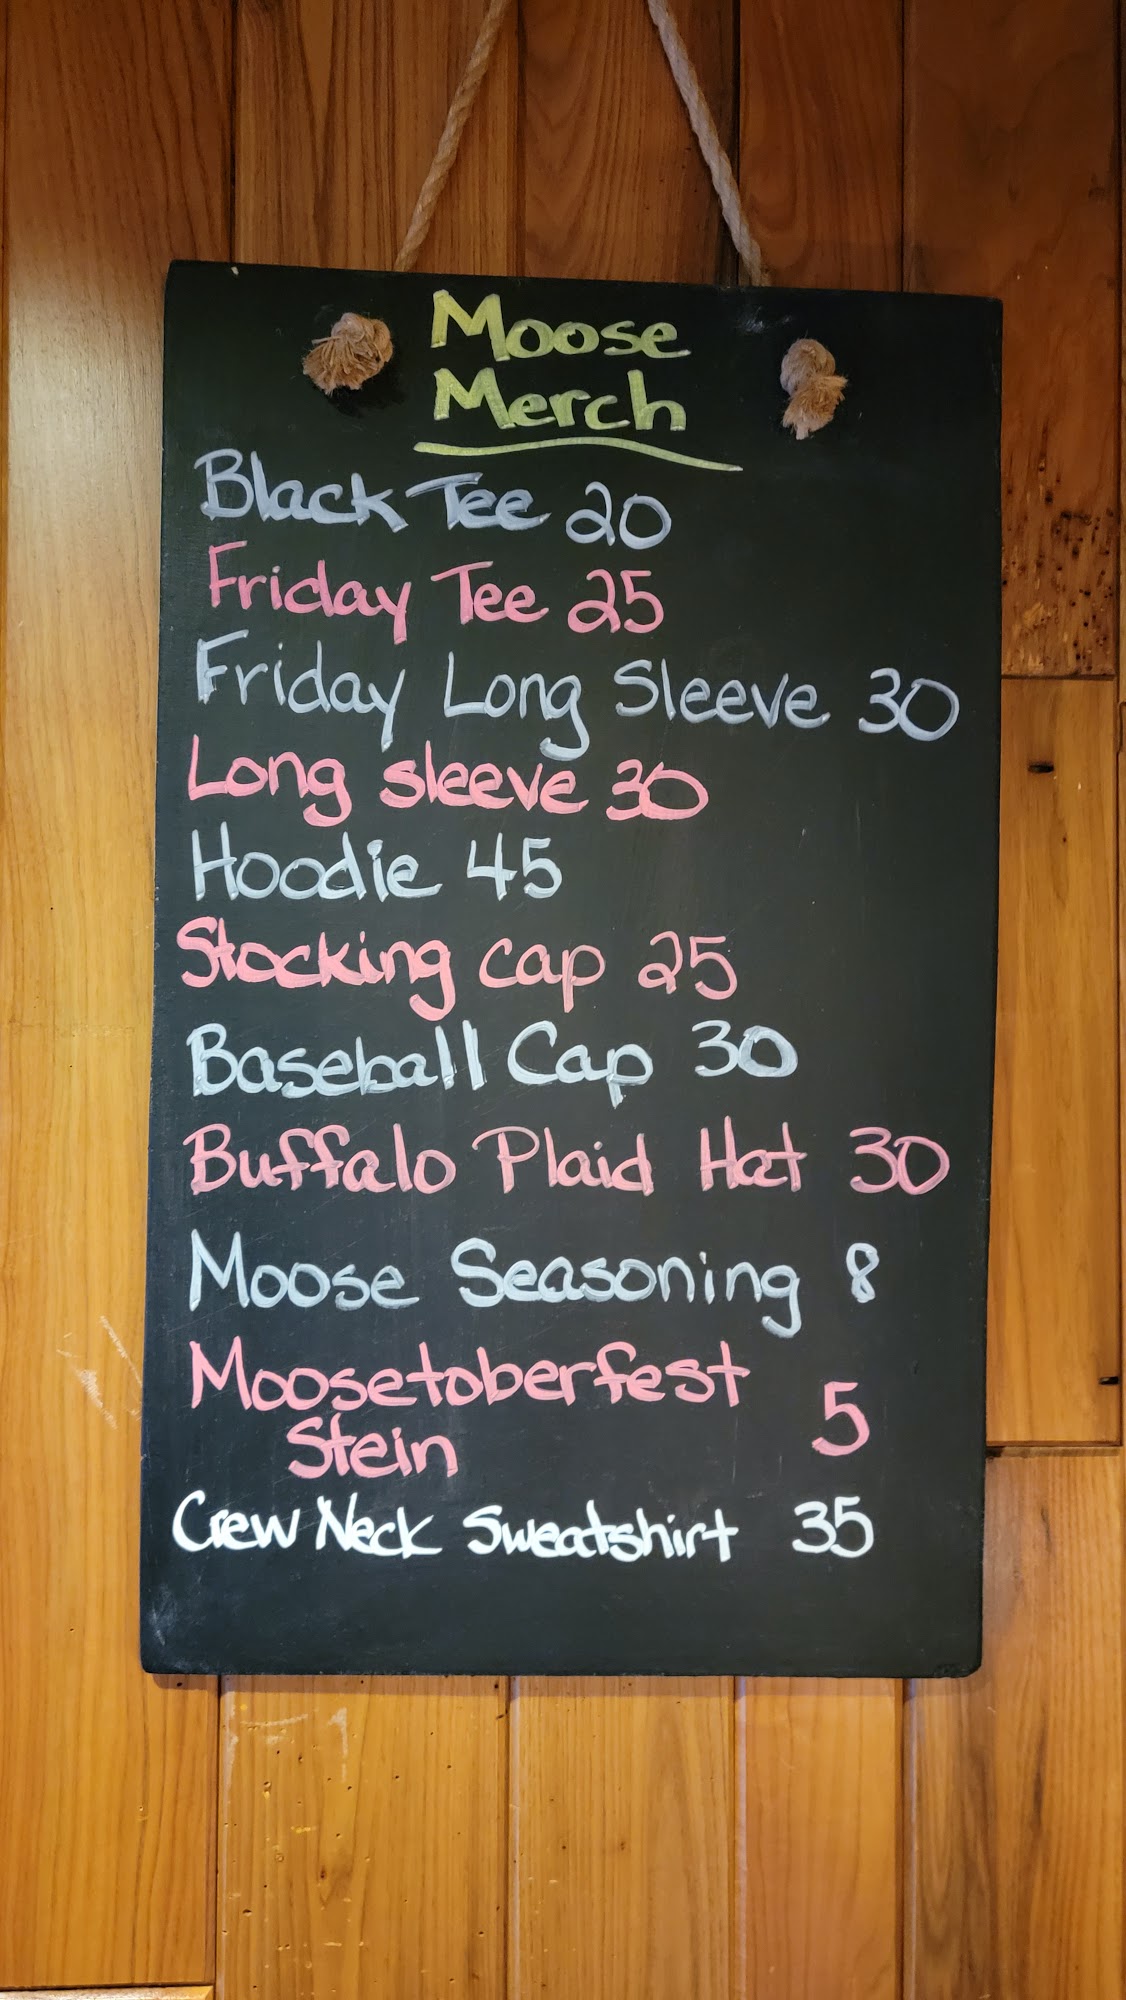 Moose
Merch
Black Tee 20
Friday Tee 25
Friday Long Sleeve 30
Long sleeve 30
Hoodie 45
Stocking cap 25
Baseball Cap 30
Buffalo Plaid Hat 30
Moose Seasoning 8
Moosetoberfest
Stein 5
Crew Neck Sweatshirt 35